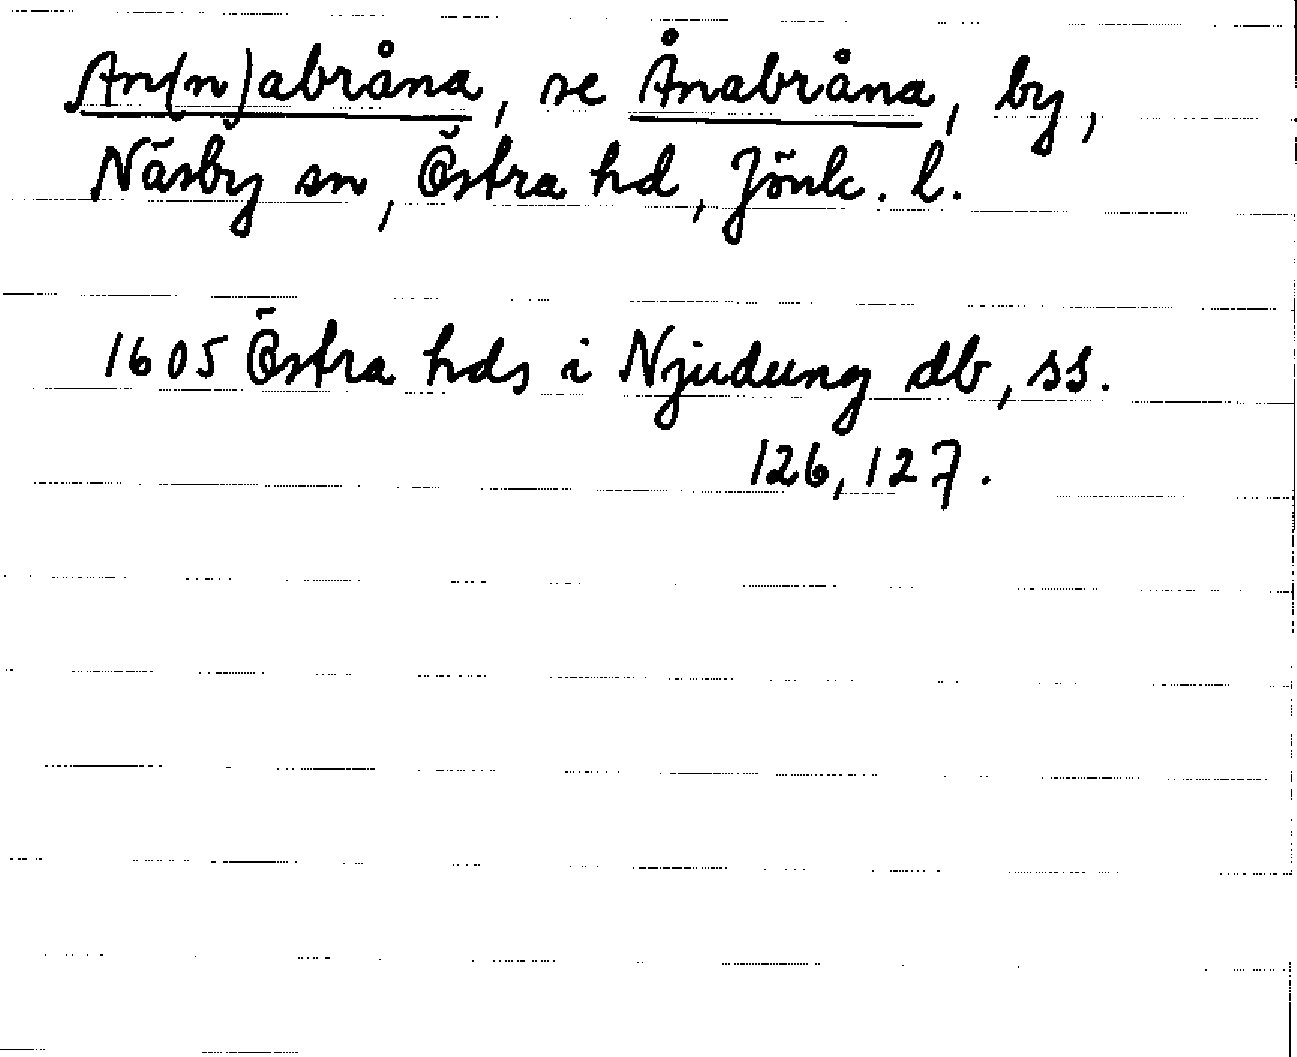 An(n)abråna, se Ånabråna, by,
Näsby sn, Östra hd, Jönk. l.
1605 Östra hds i Njudung db, ss.
126, 127.